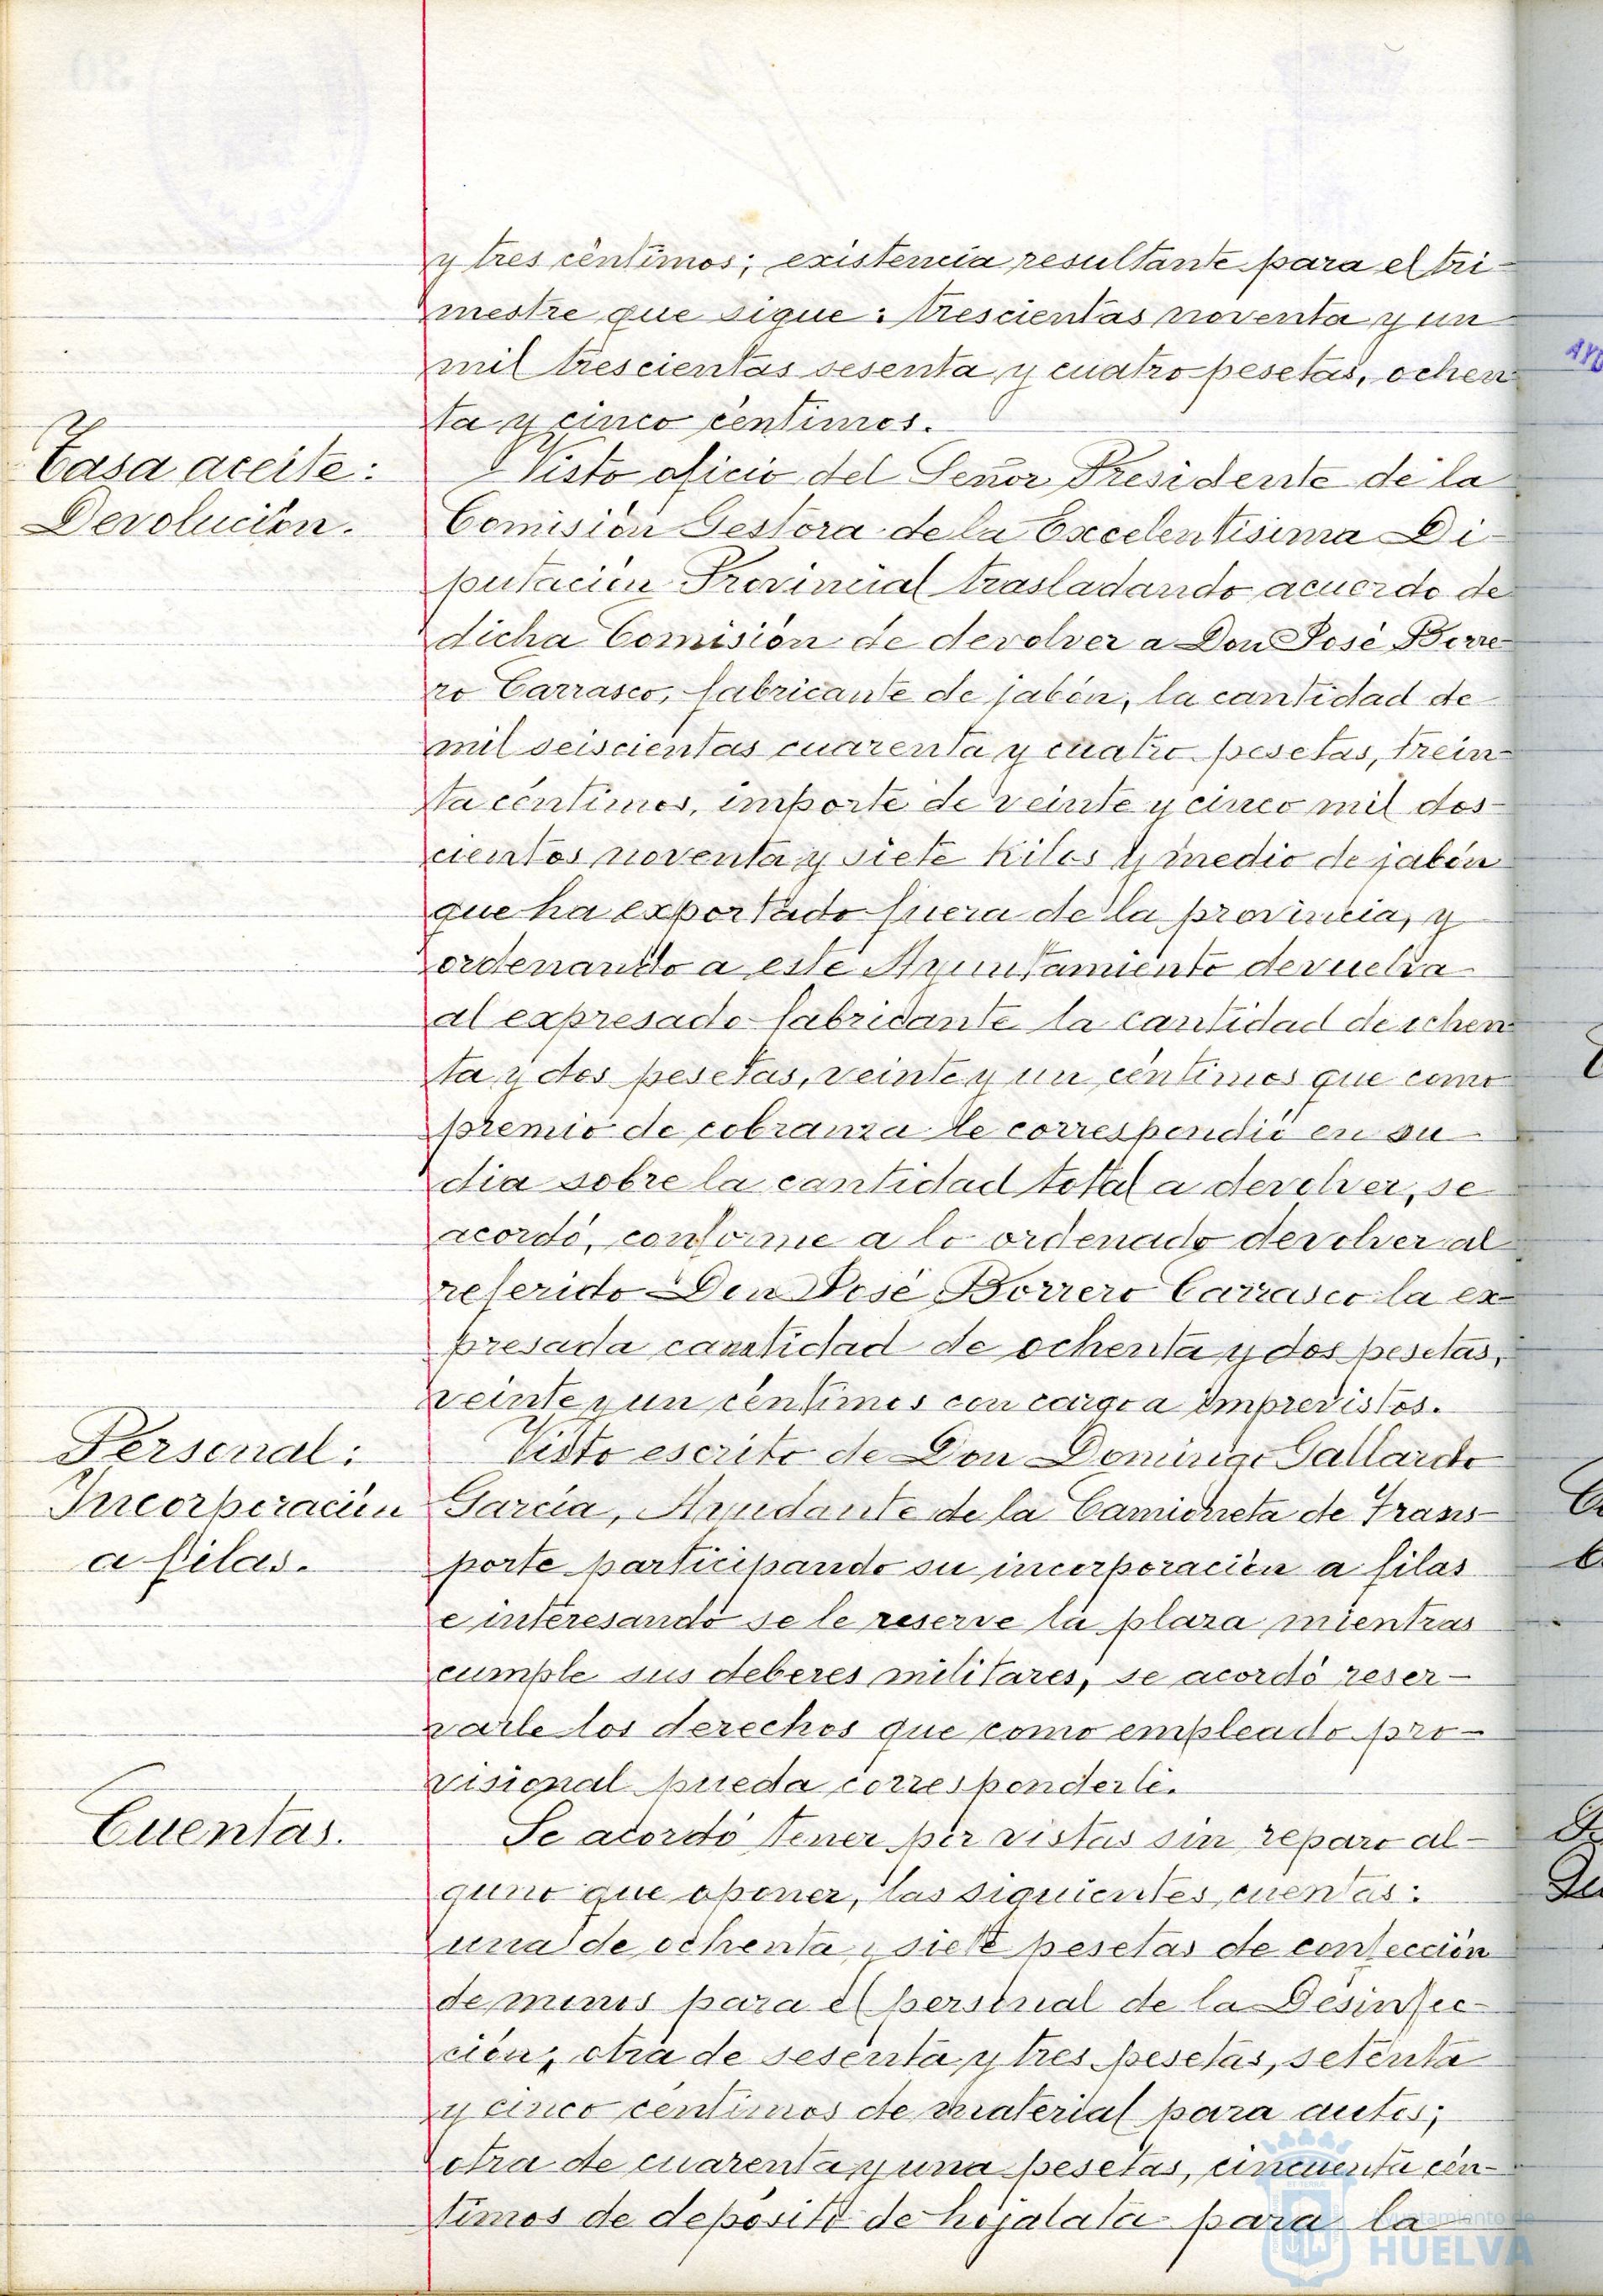 y tres céntimos; existencia resultante para el tri-
mestre que sigue: trescientas noventa y un
mil trescientas sesenta y cuatro pesetas, ochen
ta y cinco céntimos.
Tasa aceite:
Devolución.
Visto oficio del Señor Presidente de la
Comisión Gestora de la Excelentísima Di-
putación Provincial trasladando acuerdo de
dicha Comisión de devolver a Don José Borre-
ro Carrasco, fabricante de jabón, la cantidad de
mil seiscientas cuarenta y cuatro pesetas, trein-
ta céntimos, importe de veinte y cinco mil dos-
cientos noventa y siete kilos y medio de jabón
que ha exportado fuera de la provincia, y
ordenando a este Ayuntamiento devuelva
al expresado fabricante la cantidad de ochen
ta y dos pesetas, veinte y un céntimos que como
premio de cobranza le correspondió en su
dia sobre la cantidad total a devolver, se
acordó, conforme a lo ordenado devolver al
referido Don José Borrero Carrasco la ex-
presada cantidad de ochenta y dos pesetas,
veinte y un céntimos con cargo a Imprevistos.
Personal:
Incorporación
a filas.
Visto escrito de Don Domingo Gallardo
García, Ayudante de la Camioneta de Trans-
porte participando su incorporación a filas
e interesando se le reserve la plaza mientras
cumple sus deberes militares, se acordó reser-
varle los derechos que como empleado pro-
visional pueda corresponderle.
Cuentas.
Se acordó tener por vistas sin reparo al-
guno que oponer, las siguientes cuentas:
una de ochenta y siete pesetas de confección
de monos para el personal de la Desinfec-
ción; otra de sesenta y tres pesetas, setenta
y cinco céntimos de material para autos;
otra de cuarenta y una pesetas, cincuenta cén-
timos de deposito de hojalata para la
Ayuntamiento de
HUELVA